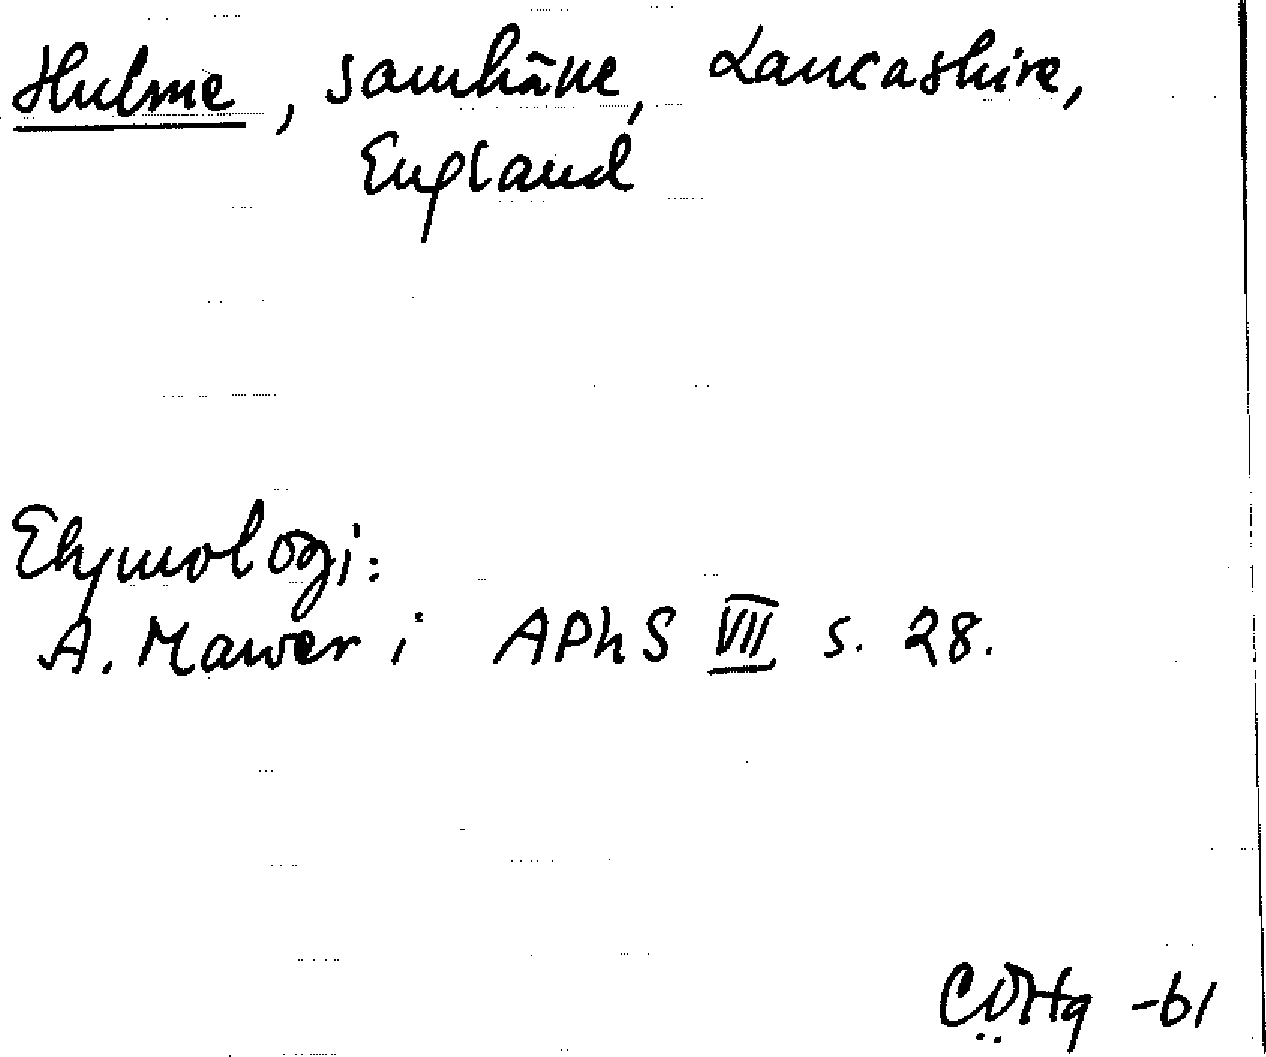 Hulme, samhäne, Lancashire,
England
Etymologi:
A. Mawer i APhS VII s. 28.
-61